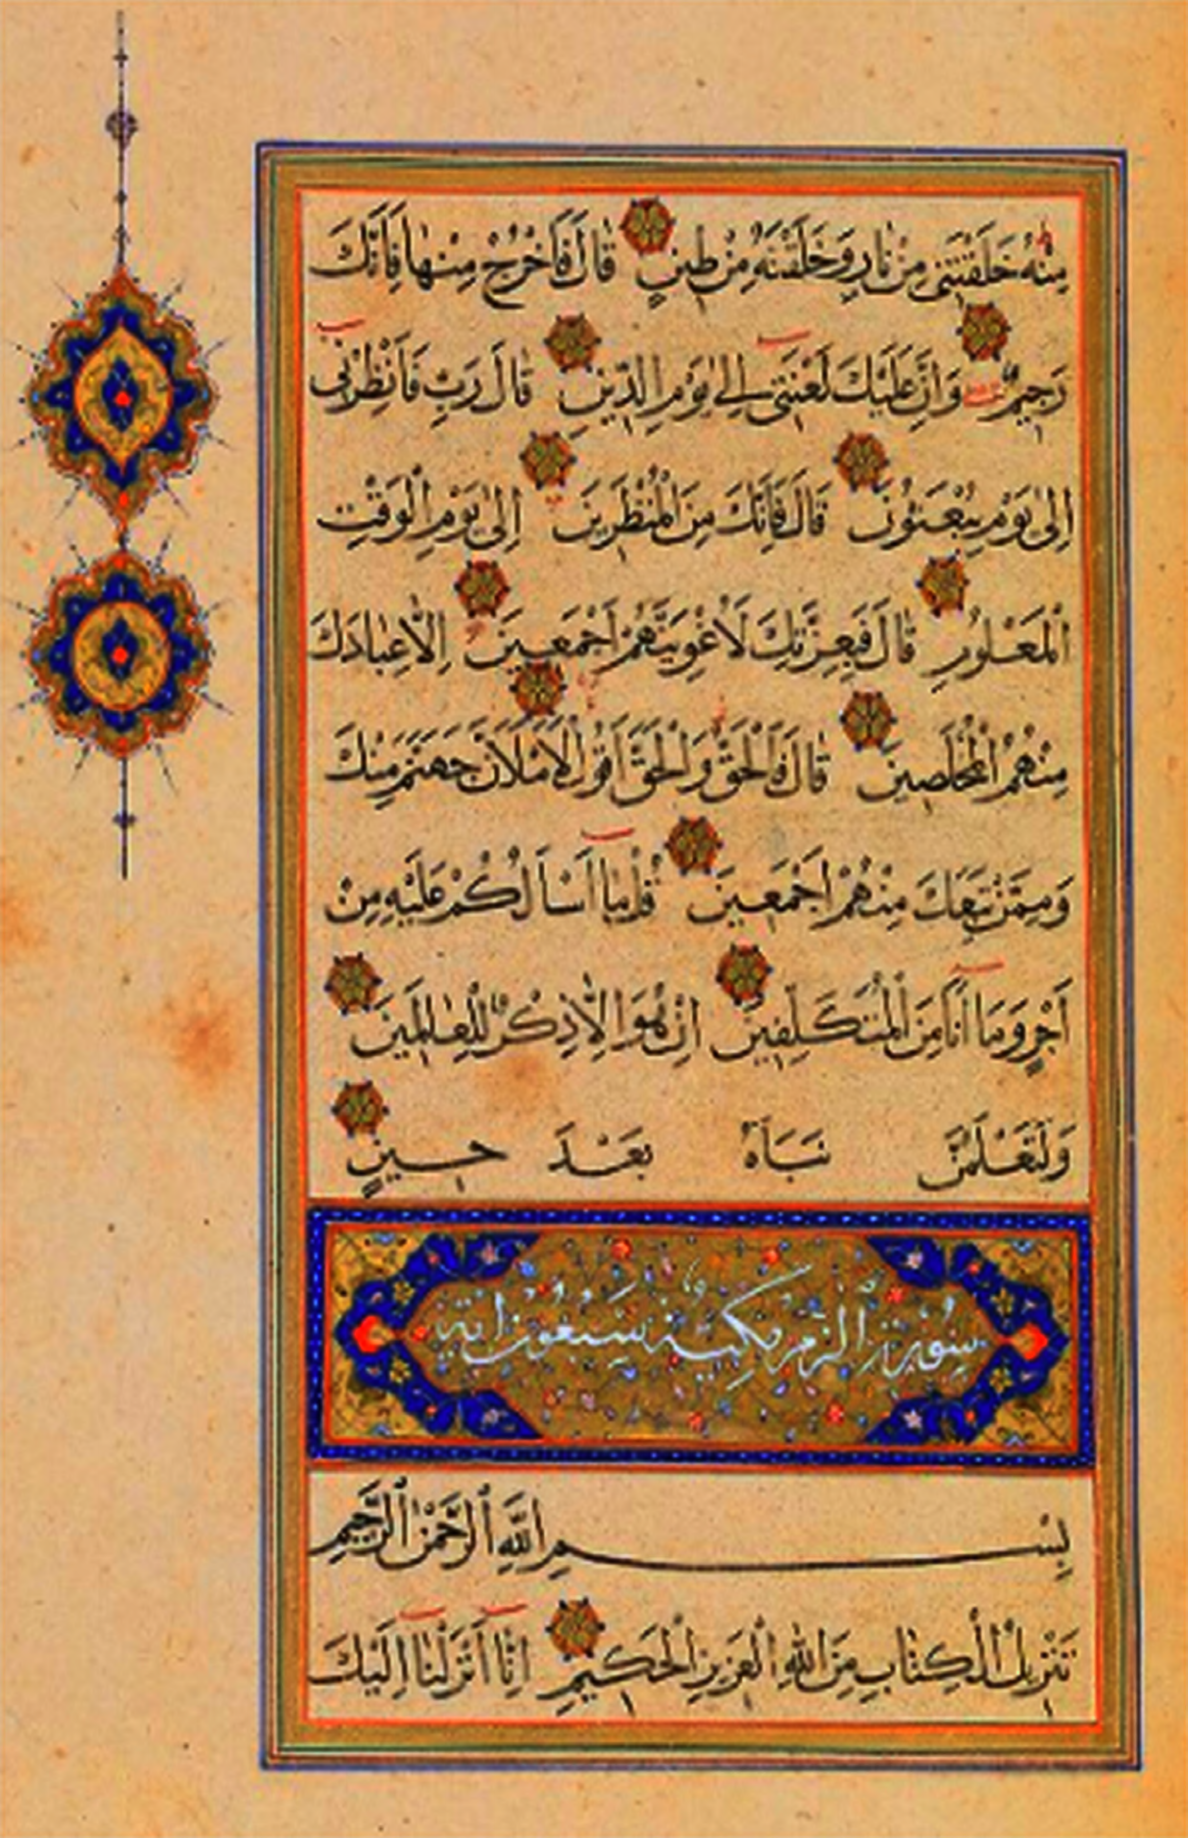 مِنْهُ خَلَقْتَنِى مِنْ نَارٍ وَخَلَقْتَهُ مِنْ طِينٍ قَالَ فَاَخْرُجْ مِنْهَا فَاِنَّكَ
رَجِيمٌ وَاِنَّ عَلَيْكَ لَعْنَتِى اِلٰى يَوْمِ الدِّينِ قَالَ رَبِّ فَاَنْظِرْنِى
اِلٰى يَوْمِ يُبْعَثُونَ قَالَ فَاِنَّكَ مِنَ الْمُنْظَرِينَ اِلٰى يَوْمِ الْوَقْتِ
الْمَعْلُومِ قَالَ فَبِعِزَّتِكَ لَاُغْوِيَنَّهُمْ اَجْمَعِينَ اِلَّا عِبَادَكَ
مِنْهُمُ الْمُخْلَصِينَ قَالَ فَالْحَقُّ وَالْحَقَّ اَقُولُ لَاَمْلَاَنَّ جَهَنَّمَ مِنْكَ
وَمِمَّنْ تَبِعَكَ مِنْهُمْ اَجْمَعِينَ قُلْ مَا اَسْاَلُكُمْ عَلَيْهِ مِنْ
اَجْرٍ وَمَا اَنَا مِنَ الْمُتَكَلِّفِينَ اِنْ هُوَ اِلَّا ذِكْرٌ لِلْعَالَمِينَ
وَلَتَعْلَمُنَّ نَبَاَهُ بَعْدَ حِينٍ
سورة الزمر مكية سبعون اية
بِسْمِ اللّٰهِ الرَّحْمٰنِ الرَّحِيمِ
تَنْزِيلُ الْكِتَابِ مِنَ اللّٰهِ الْعَزِيزِ الْحَكِيمِ اِنَّا اَنْزَلْنَا اِلَيْكَ